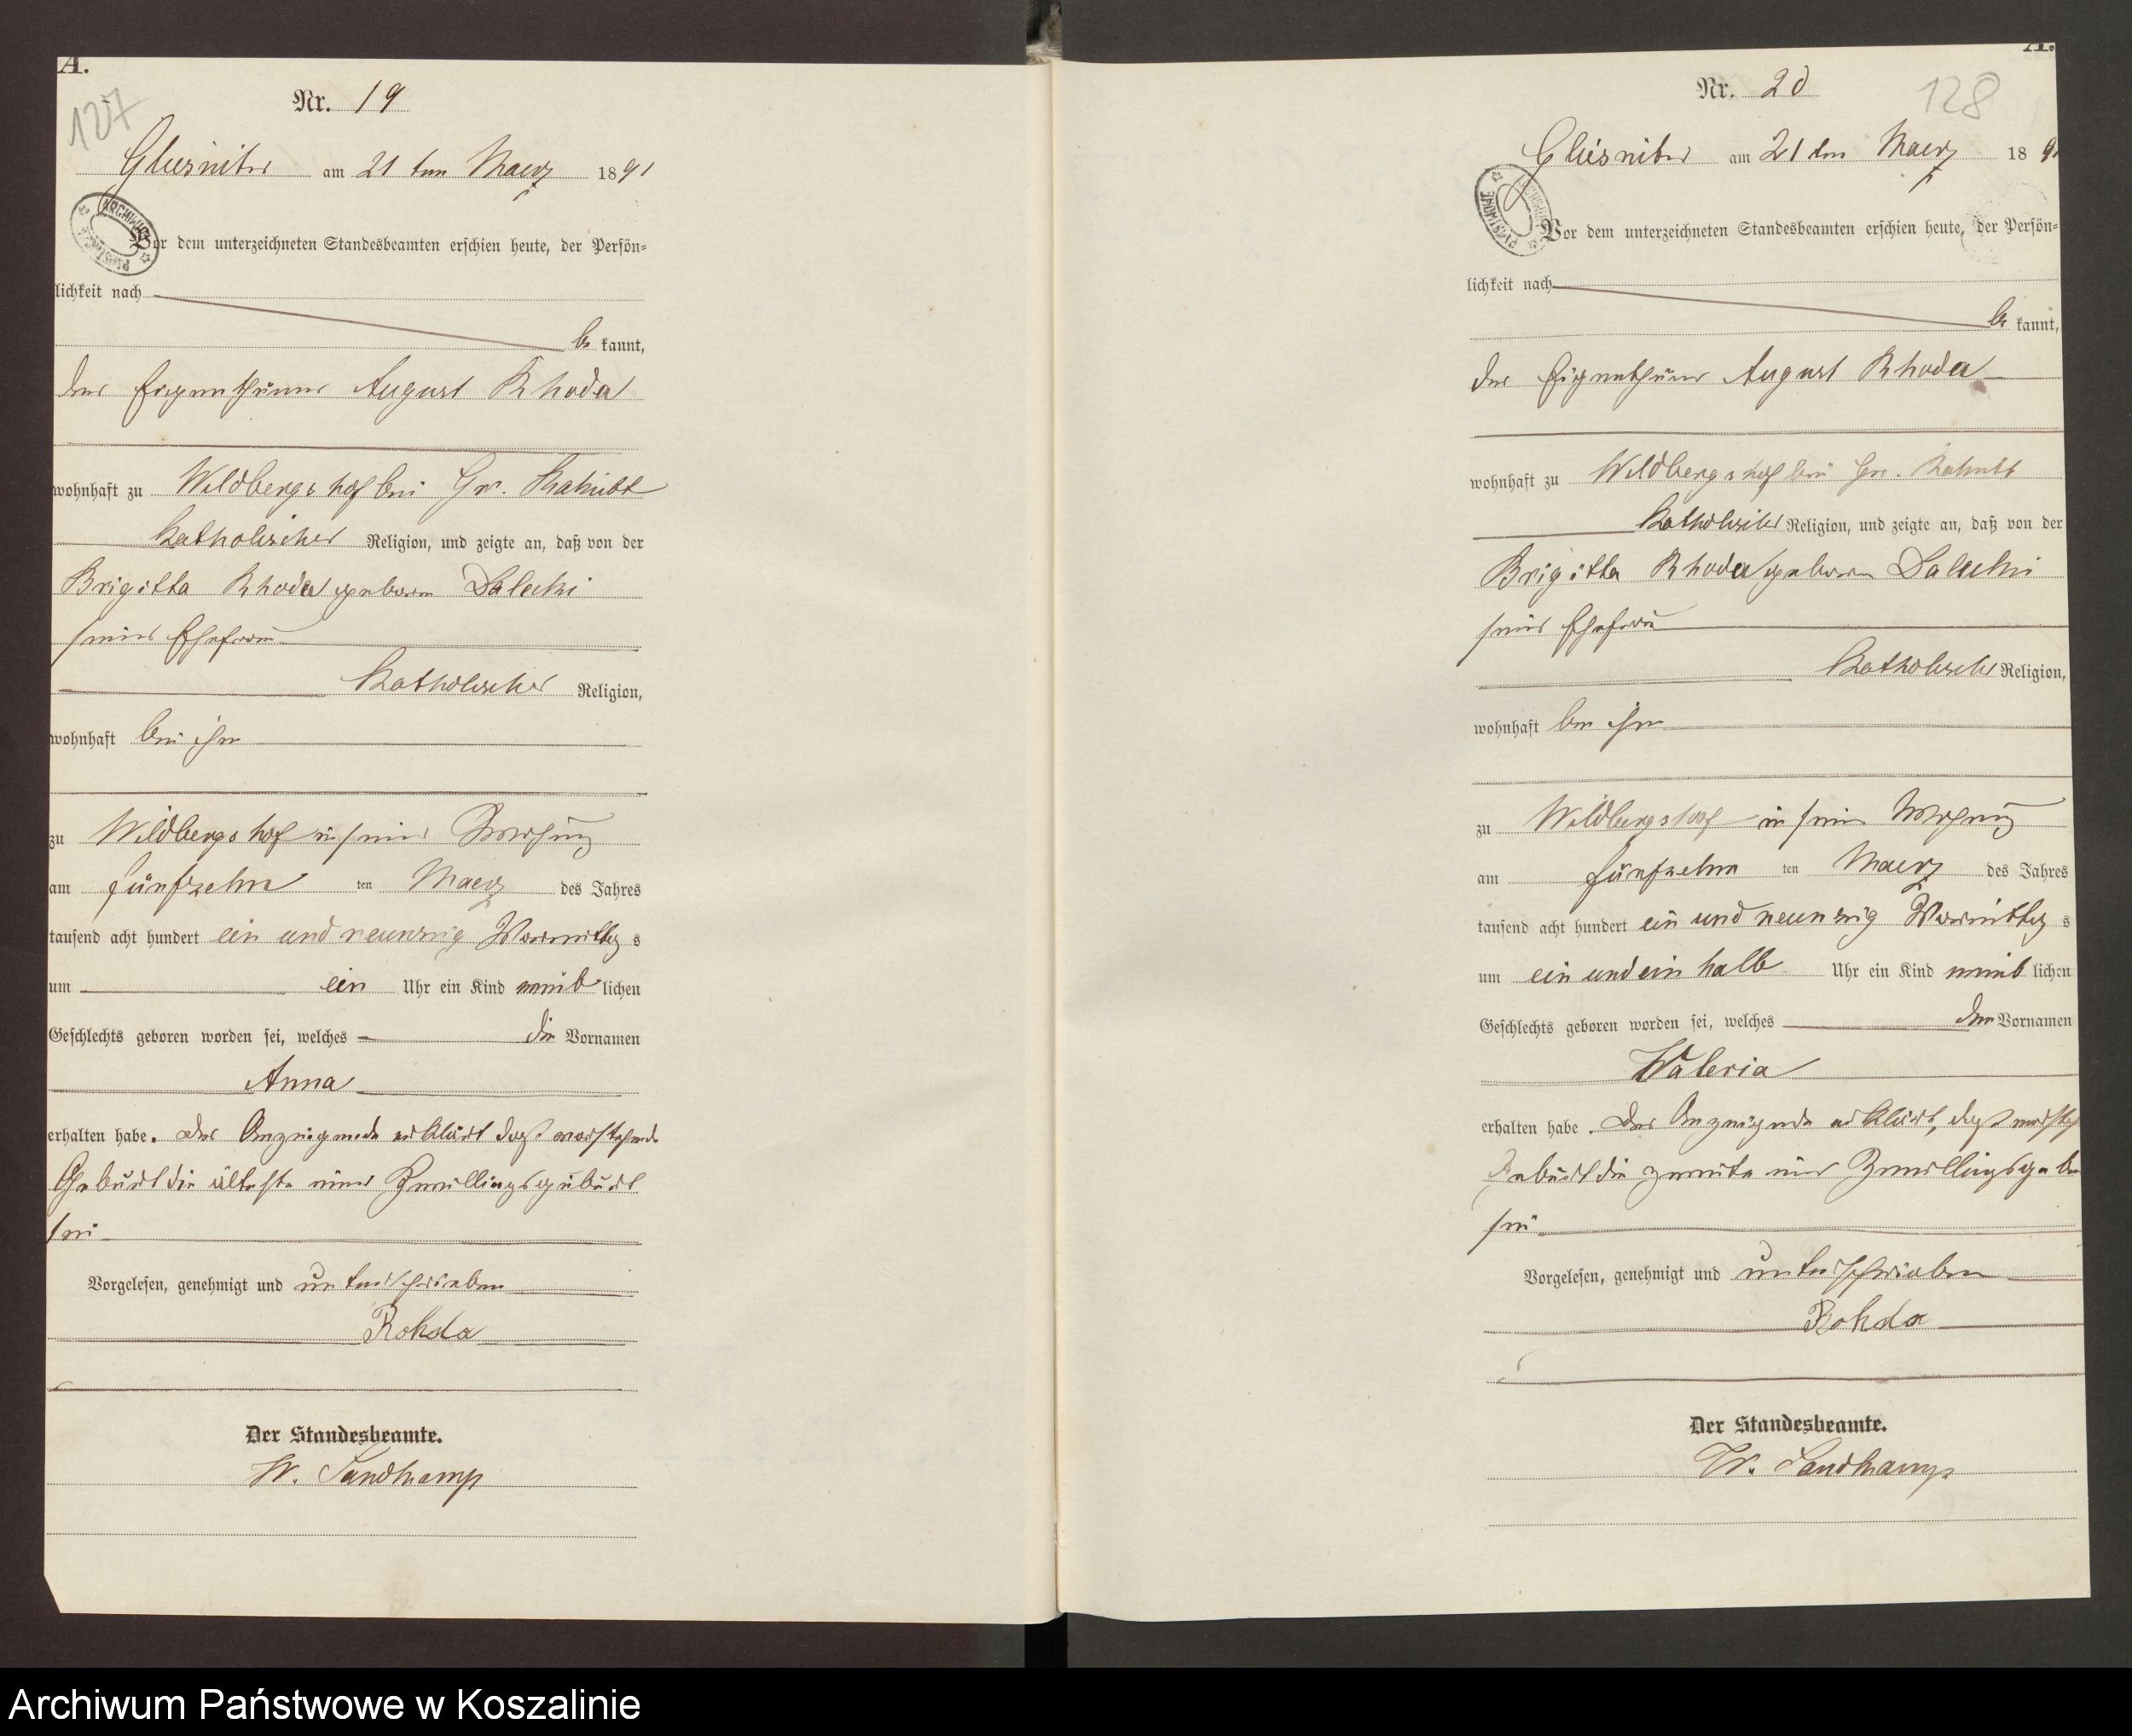 A.
127
Nr. 19
Gliesnitz am 21 ten Maerz 1891
Vor dem unterzeichneten Standesbeamten erschien heute, der Persön=
lichkeit nach
be kannt,
der Eigenthümer August Rhoda
wohnhaft zu Wildbergshof bei Gr.
Katholischer Religion, und zeigte an, daß von der
Brigitta Rhoda geboren Salecki
seiner Ehefrau
Katholischer Religion,
wohnhaft bei ihm
zu Wildbergshof in seiner Wohnung
am fünfzehn ten Maerz des Jahres
tausend acht hundert ein und neunzig Vormittag s
um ein Uhr ein Kind weib lichen
Geschlechts geboren worden sei, welches die Vornamen
Anna
erhalten habe. Der Anzeigende erklärt daß vorstehende
Geburt die älteste einer Zwillingsgeburt
sei
Vorgelesen, genehmigt und unterschrieben
Rohda
Der Standesbeamte.
W. Sandkamp
A.
128
Nr. 20
Gliesnitz am 21 ten Maerz 189
Vor dem unterzeichneten Standesbeamten erschien heute, der Persön=
lichkeit nach
be kannt,
der Eigenthümer August Rhoda
wohnhaft zu Wildbergshof bei Gr.
Katholischer Religion, und zeigte an, daß von der
Brigitta Rhoda geboren Salecki
seiner Ehefrau
Katholischer Religion,
wohnhaft bei ihm
zu Wildbergshof in seiner Wohnung
am fünfzehn ten Maerz des Jahres
tausend acht hundert ein und neunzig Vormittag s
um ein und ein halb Uhr ein Kind weib lichen
Geschlechts geboren worden sei, welches den Vornamen
Waleria
erhalten habe. Der Anzeigende erklärt, daß vorsteh
Geburt die zweite einer Zwillingsgebu
sei
Vorgelesen, genehmigt und unterschrieben
Rohda
Der Standesbeamte.
W. Sandkamp
Archiwum Państwowe w Koszalinie